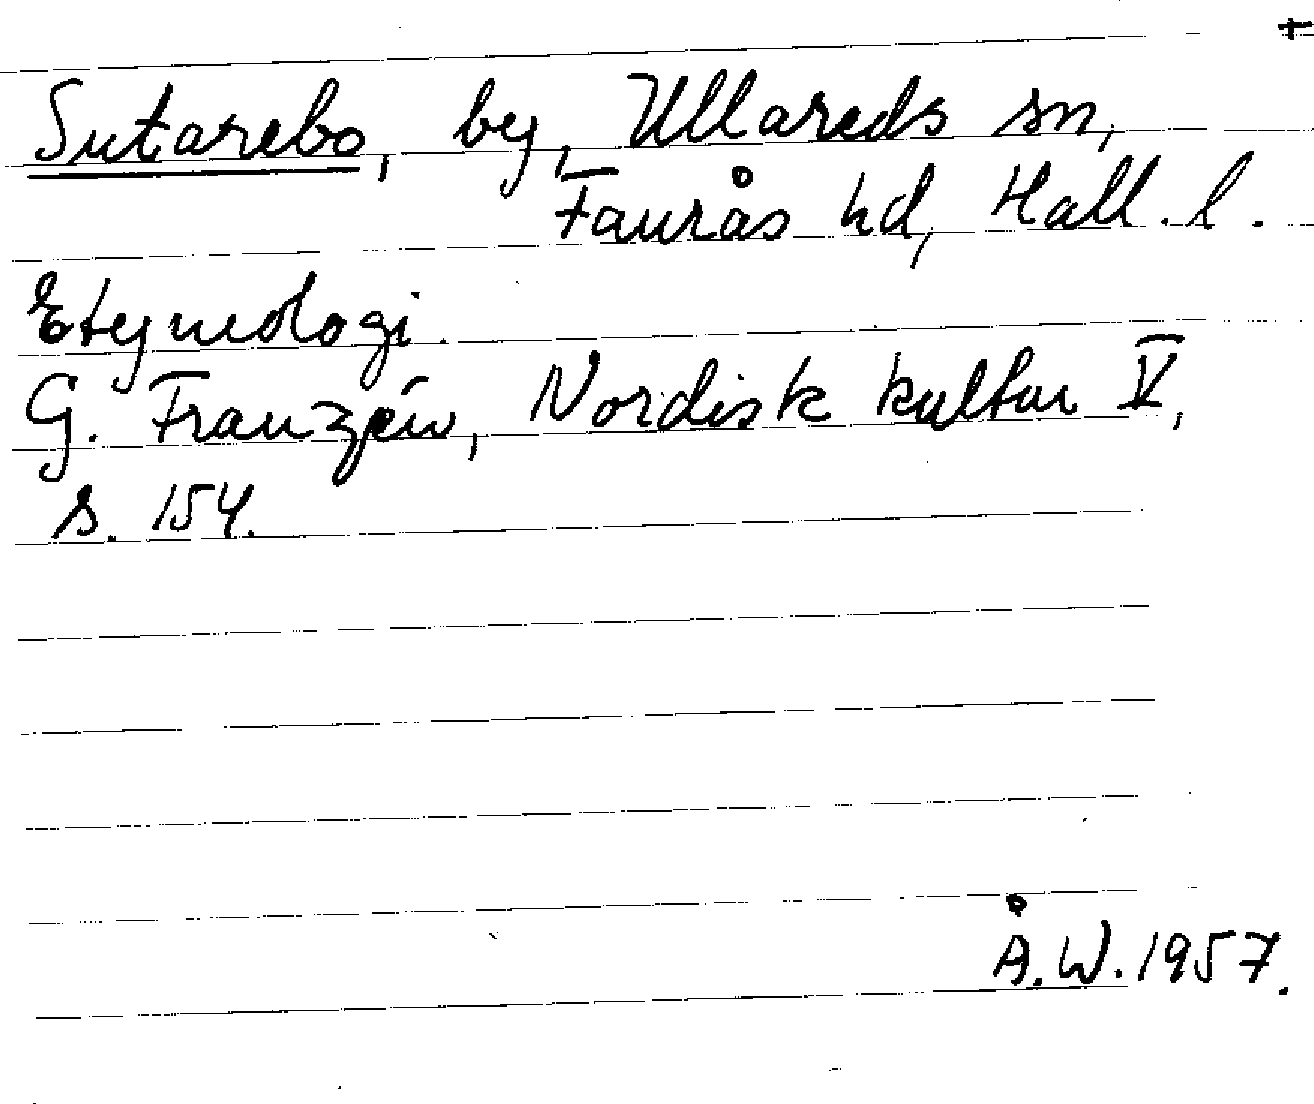 Sutarebo, by, Ullareds sn,
Faurås hd, Hall. l.
Etymologi.
G. Franzén, Nordisk kultur V,
s. 154.
Å.W. 1957.